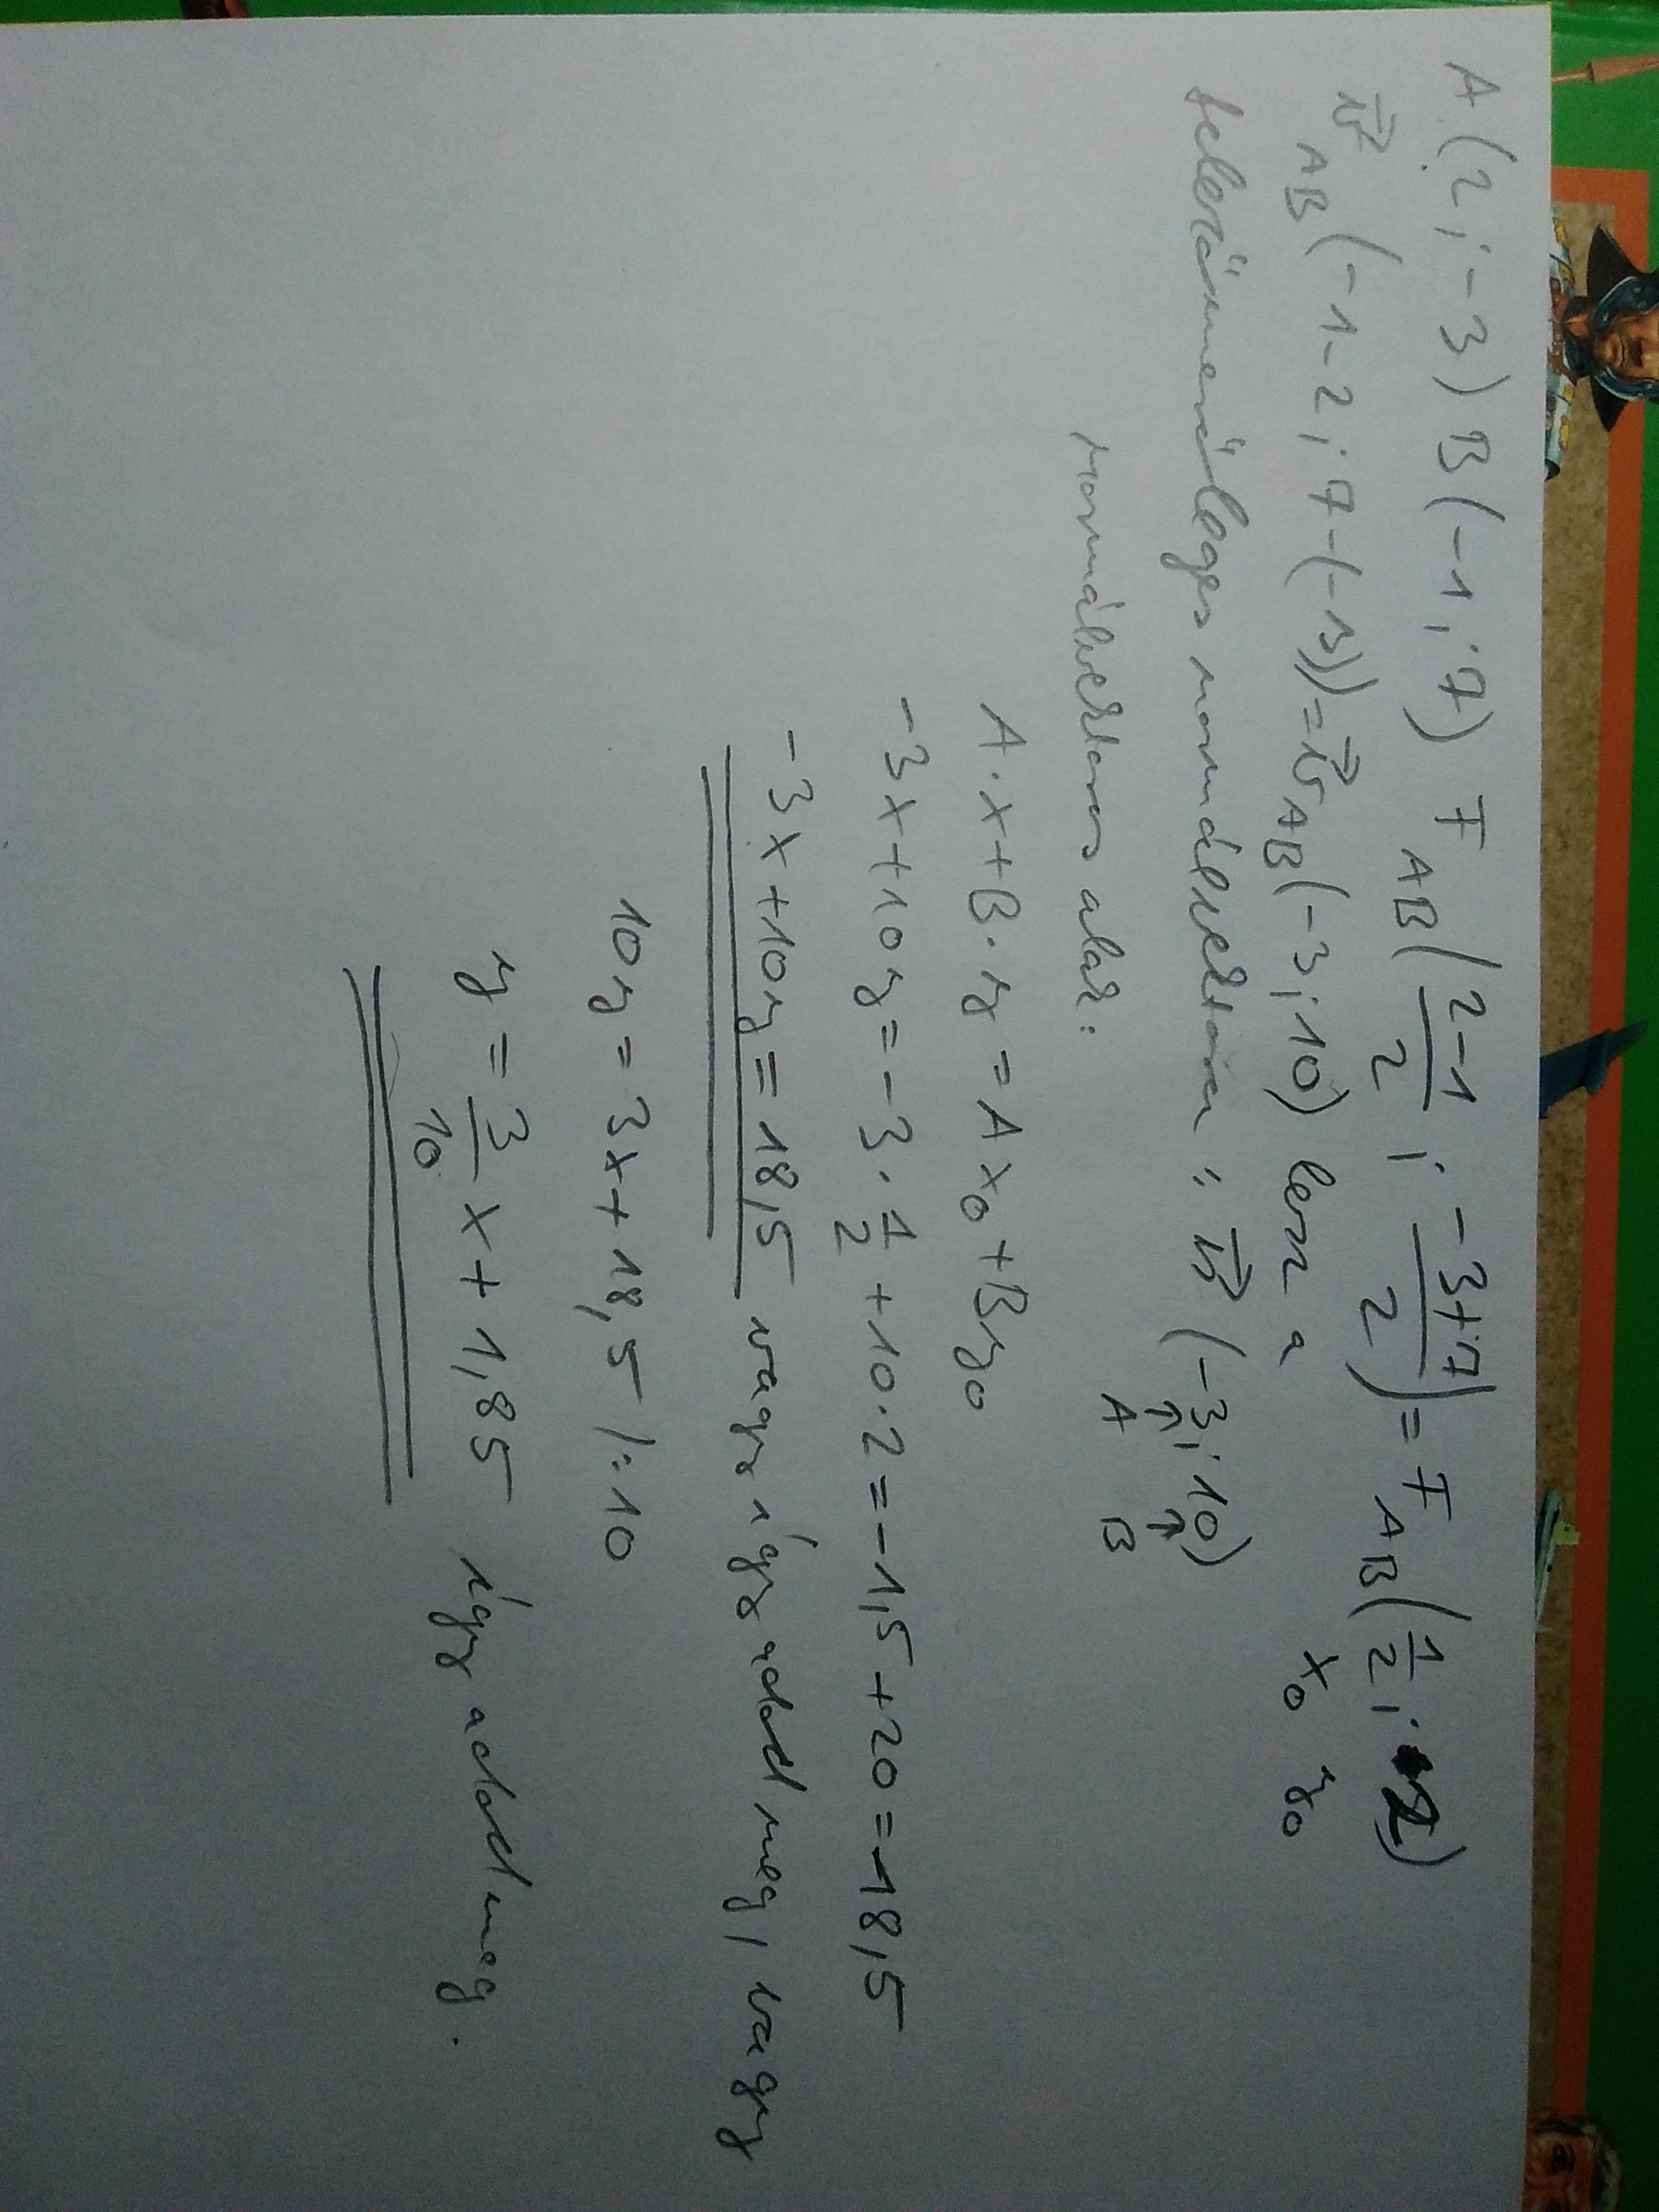 A(2;-3) B(-1;7) F_AB(\frac{2-1}{2};\frac{-3+7}{2})=F_AB(\frac{1}{2};2)
x₀ y₀
\vec{v}_AB(-1-2;7-(-3))=\vec{v}_AB(-3;10) lesz a
felezőmerőleges normálvektora: \vec{n}(-3;10)
↑ ↑
A B
normálvektoros alak:
A·x+B·y=Ax₀+By₀
-3x+10y=-3·\frac{1}{2}+10·2=-1,5+20=18,5
-3x+10y=18,5 vagy így adod meg, vagy
10y=3x+18,5 /:10
y=\frac{3}{10}x+1,85 így adod meg.